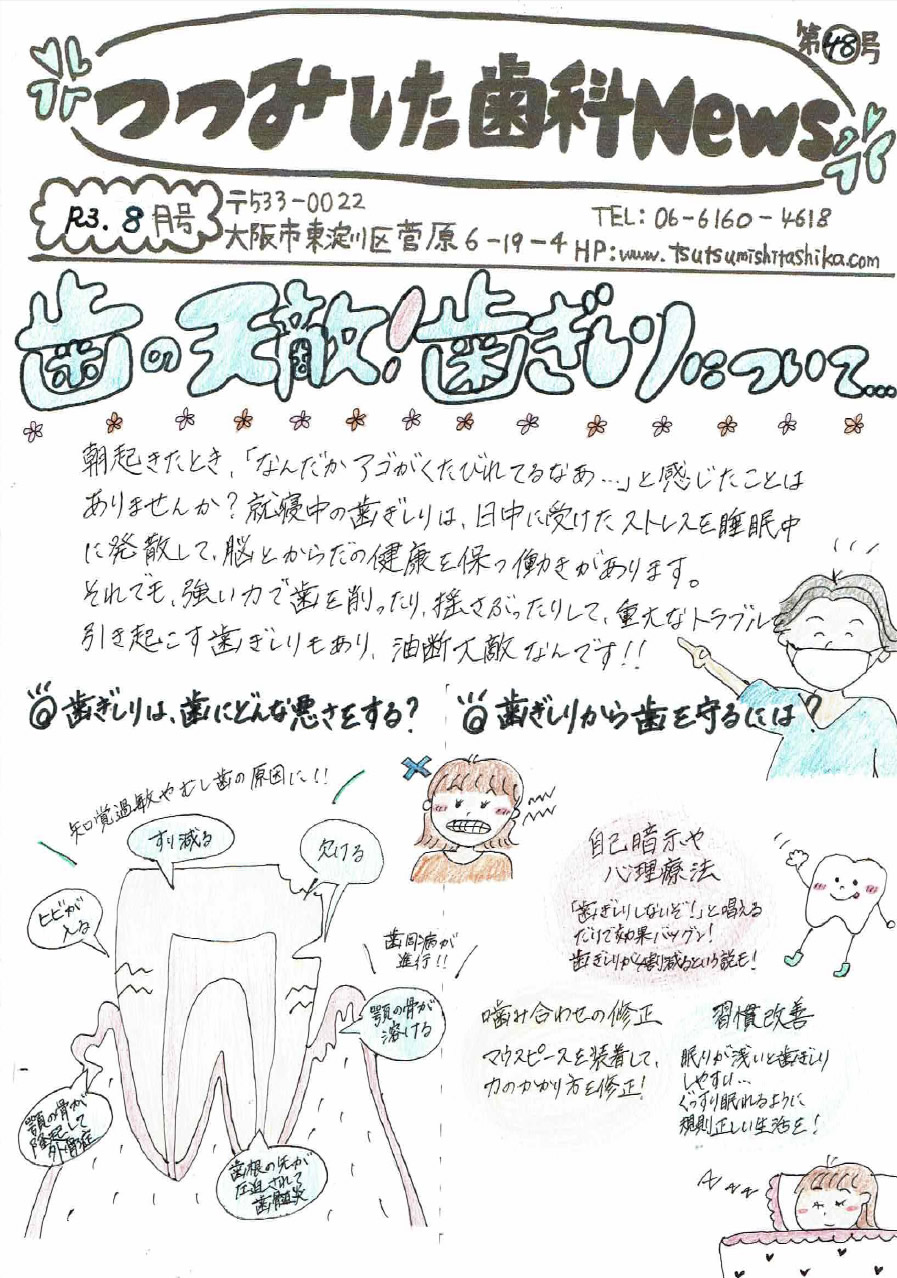 第48号
つつみした歯科News
R3.8月号
〒533-0022
大阪市東淀川区菅原6-19-4
TEL:06-6160-4618
HP:www.tsutsumishitashika.com
歯の天敵!歯ぎしりについて…
朝起きたとき、「なんだかアゴがくたびれてるなあ…」と感じたことは
ありませんか?就寝中の歯ぎしりは、日中に受けたストレスを睡眠中
に発散して、脳とからだの健康を保つ働きがあります。
それでも、強い力で歯を削ったり、揺さぶったりして、重大なトラブルを
引き起こす歯ぎしりもあり、油断大敵なんです!!
◎歯ぎしりは、歯にどんな悪さをする?
知覚過敏やむし歯の原因に!!
すり減る
欠ける
ヒビが
入る
歯周病が
進行!!
顎の骨が
溶ける
顎の骨が
隆起して
外骨症
歯根の先が
圧迫されて
歯髄炎
◎歯ぎしりから歯を守るには?
自己暗示や
心理療法
「歯ぎしりしないぞ!」と唱える
だけで効果バツグン!
歯ぎしりが4割減るという説も!
噛み合わせの修正
マウスピースを装着して、
力のかかり方を修正!
習慣改善
眠りが浅いと歯ぎしり
しやすい…
ぐっすり眠れるように
規則正しい生活を!